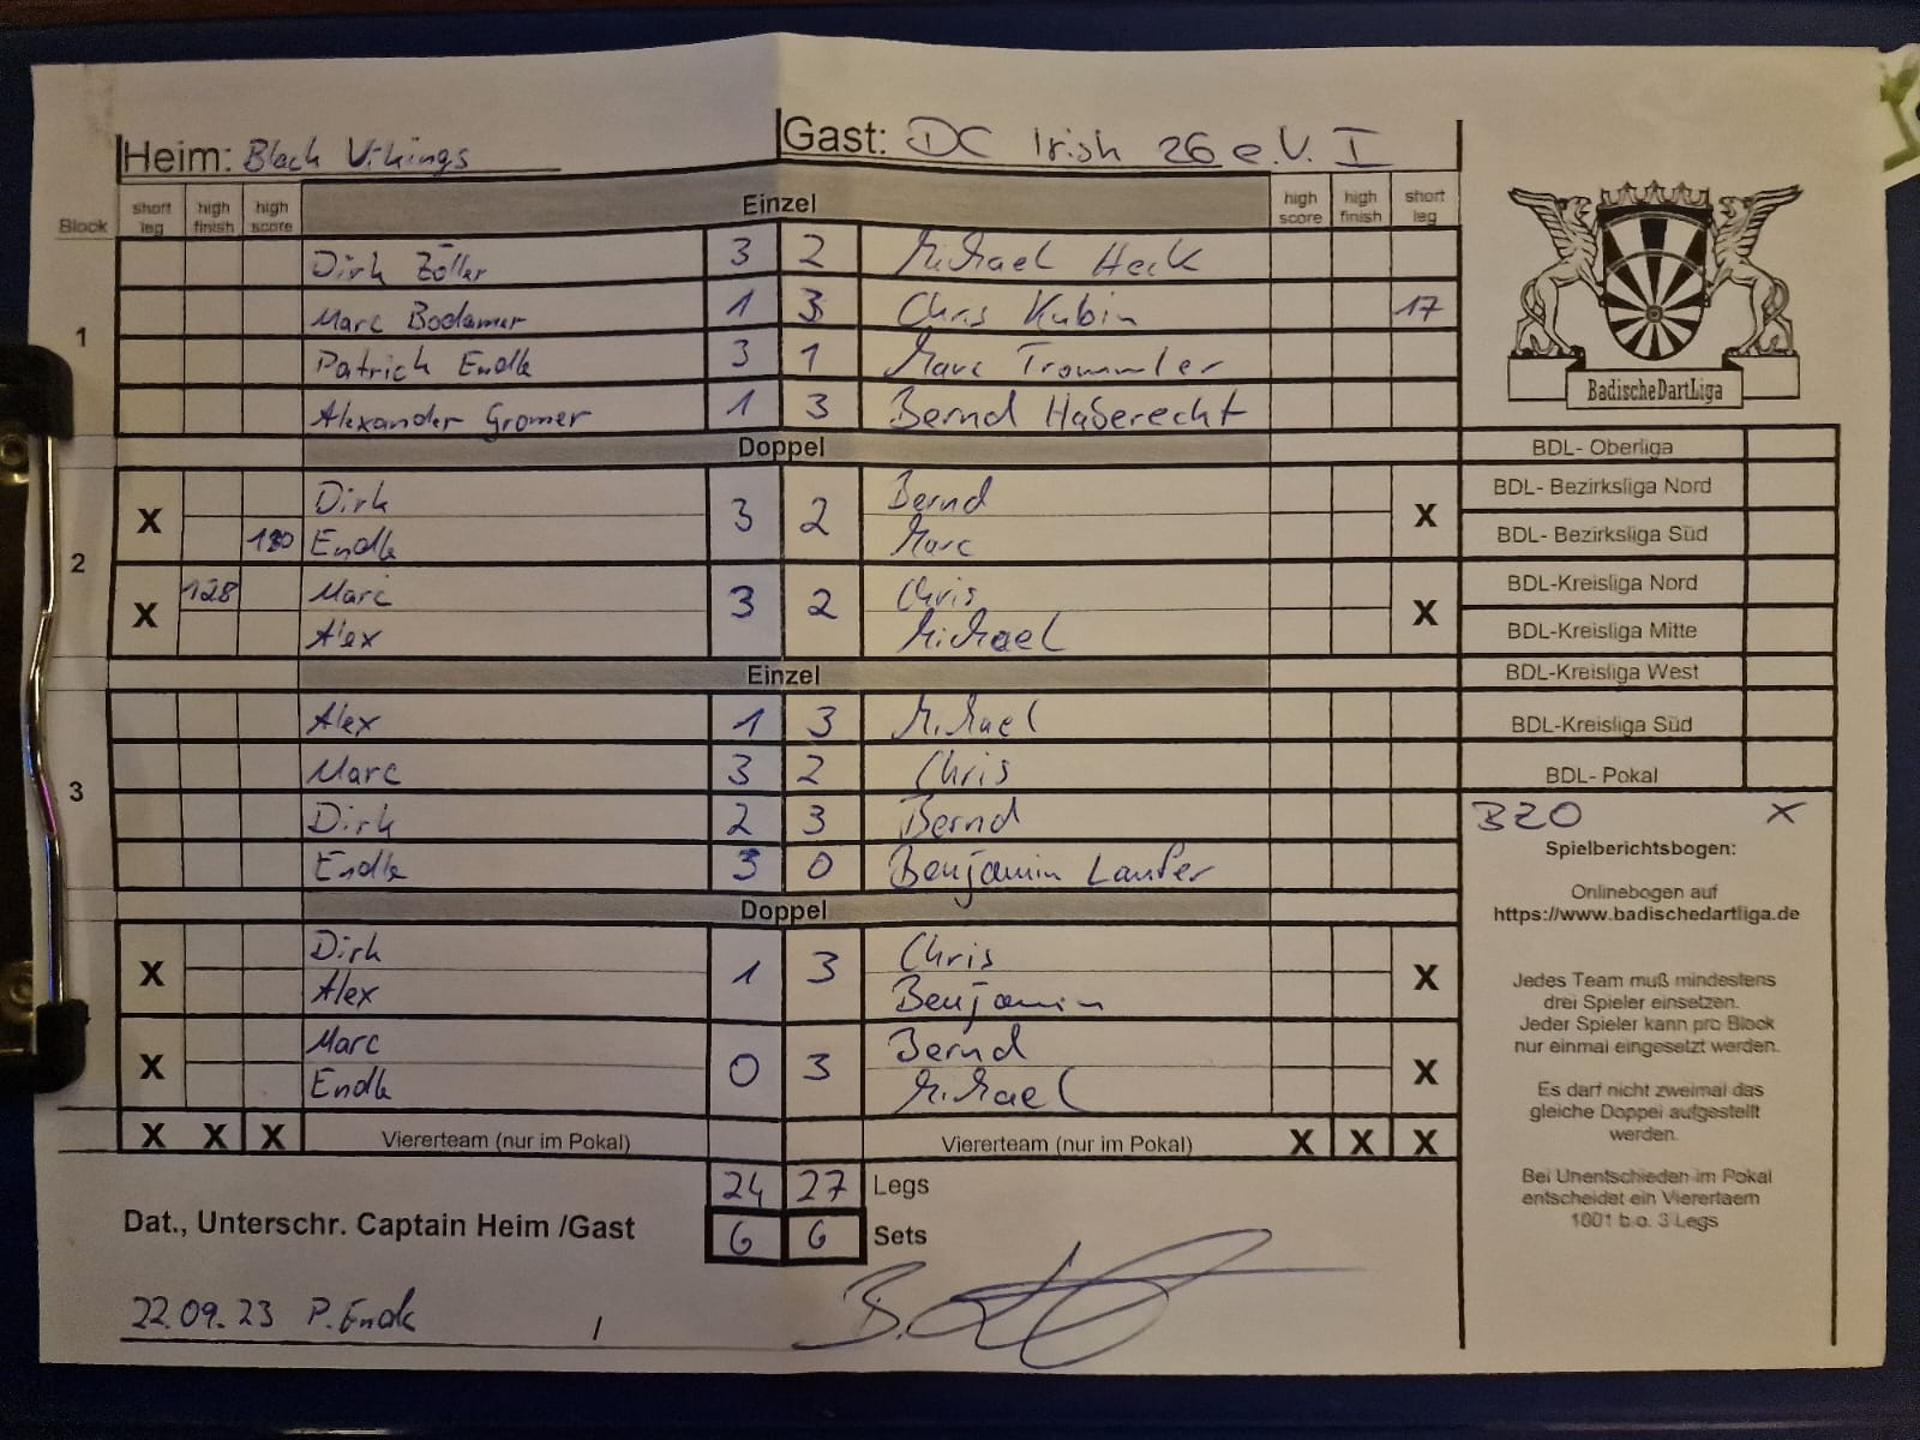 Heim: Black Vikings Gast: DC Irish 26 e.V. I
Block short leg high finish high score Einzel high score high finish short leg
1
Dirk Zöller 3 2 Michael Heck
Marc Bodamer 1 3 Chris Kubin 17
Patrick Endle 3 1 Marc Trommler
Alexander Gromer 1 3 Bernd Haberecht
Doppel
2
X Dirk 3 2 Bernd X
180 Endle Marc
X 128 Marc 3 2 Chris X
Alex Michael
Einzel
3
Alex 1 3 Michael
Marc 3 2 Chris
Dirk 2 3 Bernd
Endle 3 0 Benjamin Laufer
Doppel
X Dirk 1 3 Chris X
Alex Benjamin
X Marc 0 3 Bernd X
Endle Michael
X X X Viererteam (nur im Pokal) Viererteam (nur im Pokal) X X X
24 27 Legs
6 6 Sets
Dat., Unterschr. Captain Heim /Gast
22.09.23 P. Endle /
BadischeDartLiga
BDL- Oberliga
BDL- Bezirksliga Nord
BDL- Bezirksliga Süd
BDL-Kreisliga Nord
BDL-Kreisliga Mitte
BDL-Kreisliga West
BDL-Kreisliga Süd
BDL- Pokal
BZO X
Spielberichtsbogen:
Onlinebogen auf
https://www.badischedartliga.de
Jedes Team muß mindestens
drei Spieler einsetzen.
Jeder Spieler kann pro Block
nur einmal eingesetzt werden.
Es darf nicht zweimal das
gleiche Doppel aufgestellt
werden.
Bei Unentschieden im Pokal
entscheidet ein Vierertaem
1001 b.o. 3 Legs